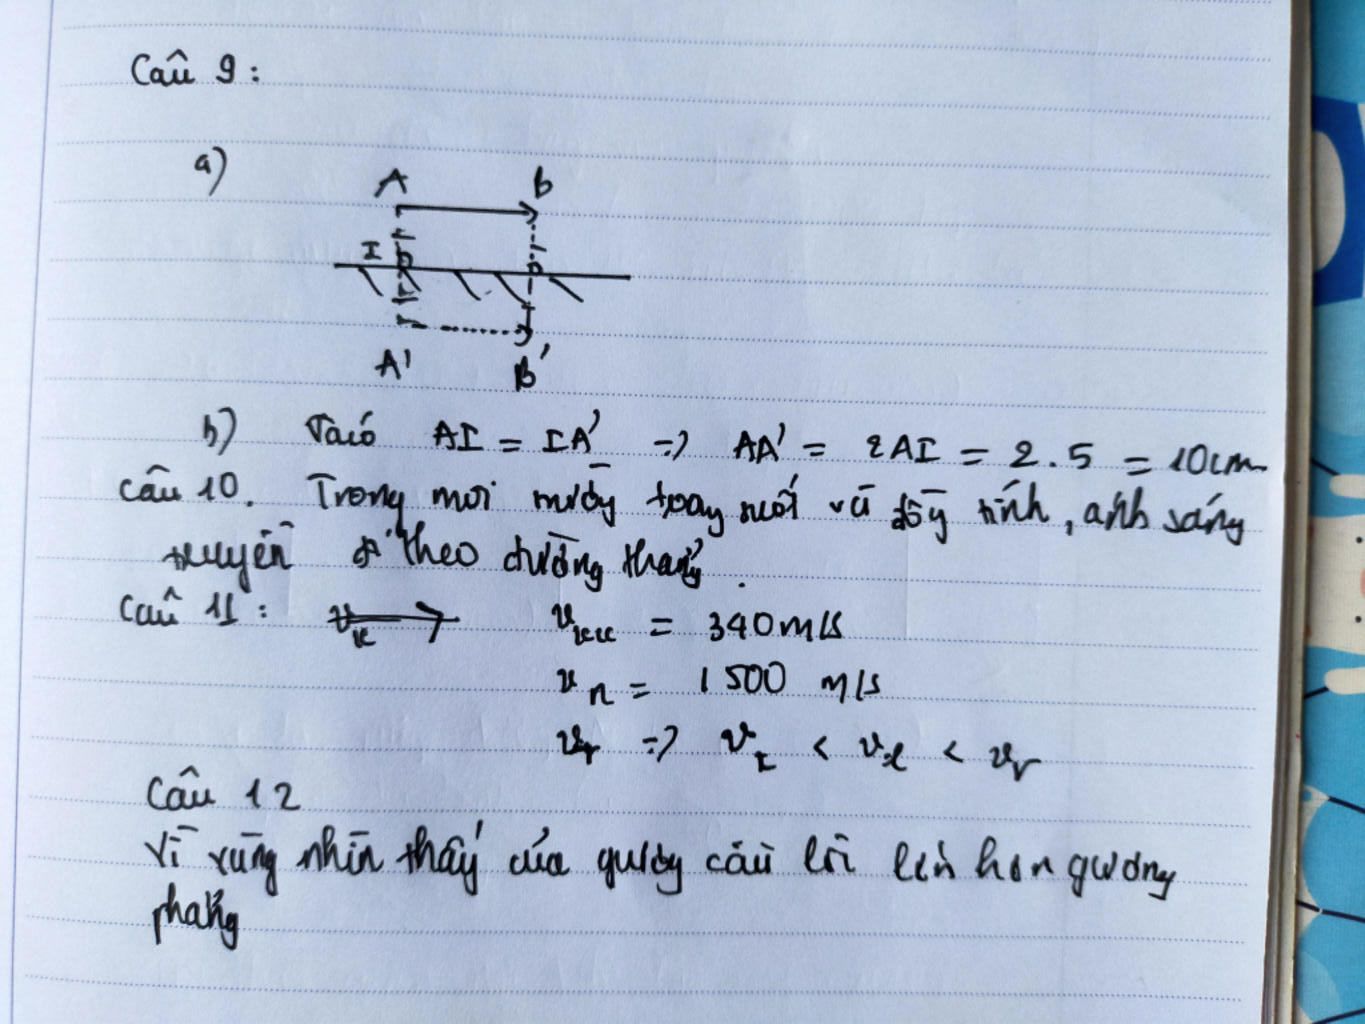 Câu 9:
a)
A B
I
A' B'
b) Ta có AI = IA' => AA' = 2AI = 2.5 = 10cm
Câu 10. Trong môi trường trong suốt và đồng tính, ánh sáng
truyền đi theo đường thẳng.
Câu 11: v_kk = 340m/s
v_n = 1500 m/s
v_r => v_k < v_l < v_r
Câu 12
Vì vùng nhìn thấy của gương cầu lồi lớn hơn gương
phẳng